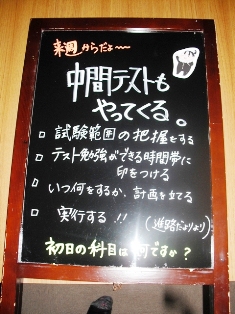 来週からだよ〜〜
中間テストも
やってくる。
□ 試験範囲の把握をする
□ テスト勉強ができる時間帯に
印をつける
□ いつ何をするか、計画を立てる
□ 実行する!!
(進路だよりより)
初日の科目は何ですか?